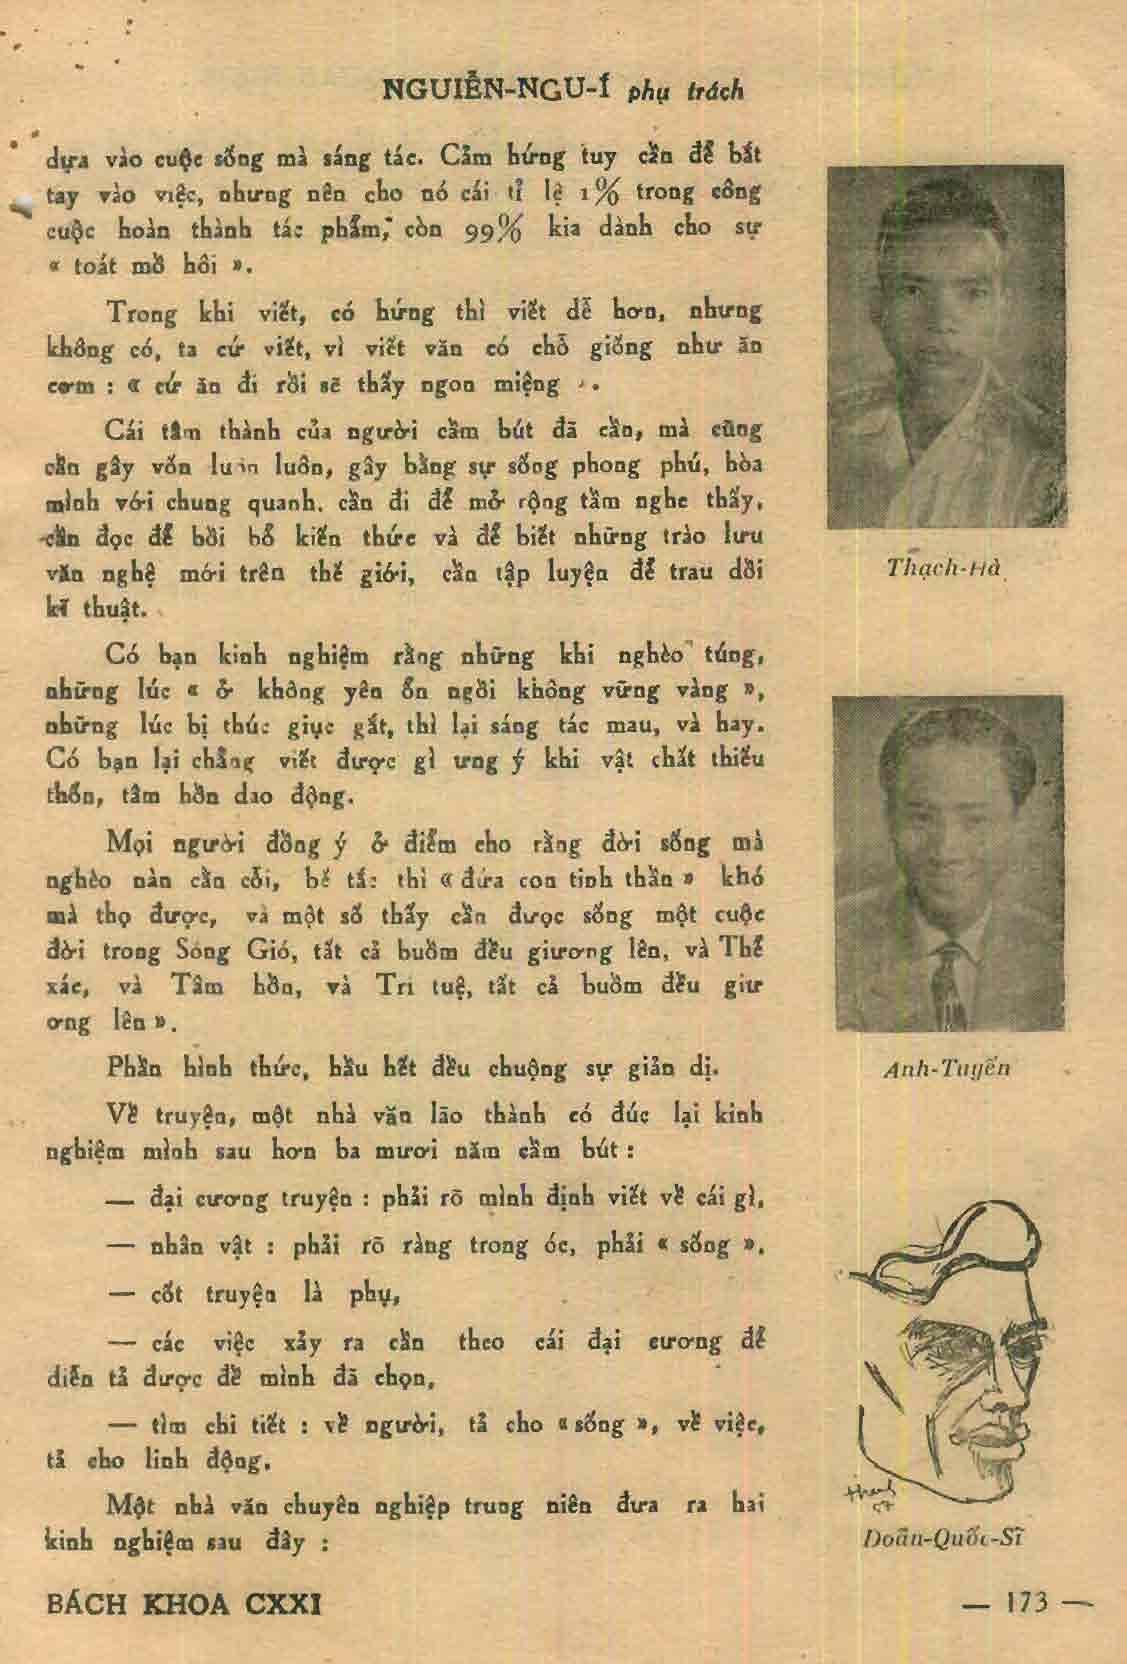 NGUIỄN-NGU-Í phụ trách
dựa vào cuộc sống mà sáng tác. Cảm hứng tuy cần để bắt
tay vào việc, nhưng nên cho nó cái tỉ lệ 1% trong công
cuộc hoàn thành tác phẩm, còn 99% kia dành cho sự
« toát mồ hôi ».
Trong khi viết, có hứng thì viết dễ hơn, nhưng
không có, ta cứ viết, vì viết văn có chỗ giống như ăn
cơm : « cứ ăn đi rồi sẽ thấy ngon miệng ».
Cái tâm thành của người cầm bút đã cần, mà cũng
cần gây vốn luôn luôn, gây bằng sự sống phong phú, hòa
mình với chung quanh. cần đi để mở rộng tầm nghe thấy,
cần đọc để bồi bổ kiến thức và để biết những trào lưu
văn nghệ mới trên thế giới, cần tập luyện để trau dồi
kĩ thuật.
Có bạn kinh nghiệm rằng những khi nghèo túng,
những lúc « ở không yên ổn ngồi không vững vàng »,
những lúc bị thúc giục gắt, thì lại sáng tác mau, và hay.
Có bạn lại chẳng viết được gì ưng ý khi vật chất thiếu
thốn, tâm hồn dao động.
Mọi người đồng ý ở điểm cho rằng đời sống mà
nghèo nàn cằn cỗi, bế tắc thì « đứa con tinh thần » khó
mà thọ được, và một số thấy cần được sống một cuộc
đời trong Sóng Gió, tất cả buồm đều giương lên, và Thể
xác, và Tâm hồn, và Trí tuệ, tất cả buồm đều giư
ơng lên ».
Phần hình thức, hầu hết đều chuộng sự giản dị.
Về truyện, một nhà văn lão thành có đúc lại kinh
nghiệm mình sau hơn ba mươi năm cầm bút :
— đại cương truyện : phải rõ mình định viết về cái gì,
— nhân vật : phải rõ ràng trong óc, phải « sống ».
— cốt truyện là phụ,
— các việc xảy ra cần theo cái đại cương để
diễn tả được đề mình đã chọn,
— tìm chi tiết : về người, tả cho « sống », về việc,
tả cho linh động.
Một nhà văn chuyên nghiệp trung niên đưa ra hai
kinh nghiệm sau đây :
Thạch-Hà
Anh-Tuyến
57
Doãn-Quốc-Sĩ
BÁCH KHOA CXXI
— 173 —